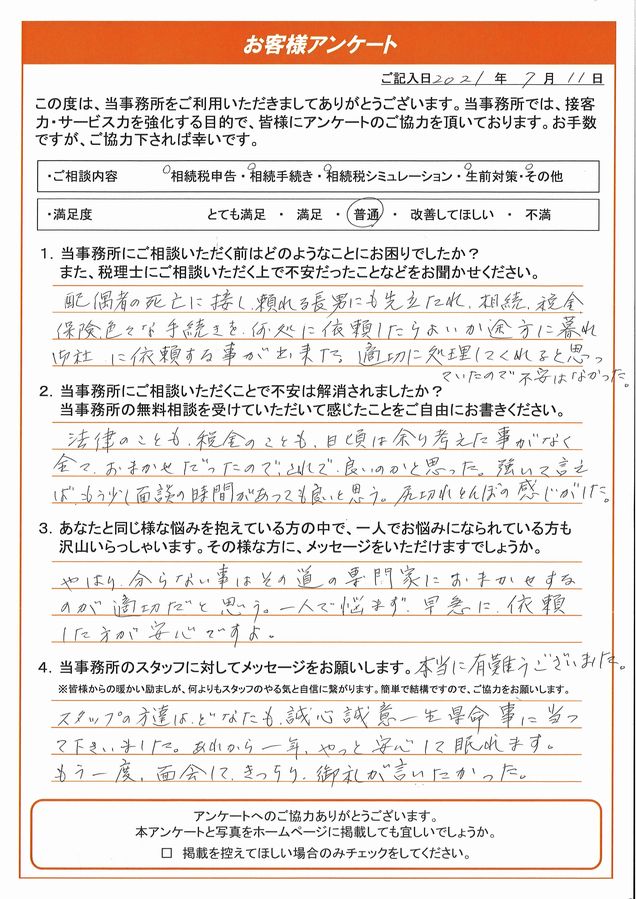 お客様アンケート
ご記入日2021年 7月 11日
この度は、当事務所をご利用いただきましてありがとうございます。当事務所では、接客
力・サービス力を強化する目的で、皆様にアンケートのご協力を頂いております。お手数
ですが、ご協力下されば幸いです。
・ご相談内容 相続税申告・相続手続き・相続税シミュレーション・生前対策・その他
・満足度 とても満足 ・ 満足 ・ 普通 ・ 改善してほしい ・ 不満
1. 当事務所にご相談いただく前はどのようなことにお困りでしたか？
また、税理士にご相談いただく上で不安だったことなどをお聞かせください。
配偶者の死亡に接し、頼れる長男にも先立たれ、相続、税金
保険、色々な手続きを、何処に依頼したらよいか途方に暮れ
御社に依頼する事が出来た。適切に処理してくれると思っ
ていたので不安はなかった。
2. 当事務所にご相談いただくことで不安は解消されましたか？
当事務所の無料相談を受けていただいて感じたことをご自由にお書きください。
法律のことも、税金のことも、日頃は余り考えた事がなく
全て、おまかせだったので、これで良いのかと思った。強いて言え
ば、もう少し面談の時間があっても良いと思う。尻切れとんぼの感じがした。
3. あなたと同じ様な悩みを抱えている方の中で、一人でお悩みになられている方も
沢山いらっしゃいます。その様な方に、メッセージをいただけますでしょうか。
やはり、分らない事はその道の専門家におまかせする
のが適切だと思う。一人で悩まず、早急に、依頼
した方が安心ですよ。
4. 当事務所のスタッフに対してメッセージをお願いします。本当に有難うございました。
※皆様からの暖かい励ましが、何よりもスタッフのやる気と自信に繋がります。簡単で結構ですので、ご協力をお願いします。
スタッフの方達は、どなたも、誠心誠意一生県命事に当っ
て下さいました。あれから一年、やっと安心して眠れます。
もう一度、面会して、きっちり、御礼が言いたかった。
アンケートへのご協力ありがとうございます。
本アンケートと写真をホームページに掲載しても宜しいでしょうか。
□ 掲載を控えてほしい場合のみチェックをしてください。